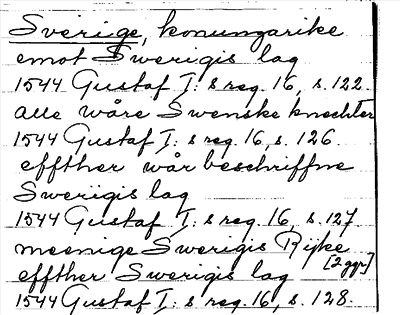 Sverige, konungarike
emot Swerigis lag
1544 Gustaf I: s reg. 16, s. 122.
alle wåre Swenske knechter
1544 Gustaf I: s reg. 16, s. 126.
effther wår beschriffne
Sweriigis lag
1544 Gustaf I: s reg. 16, s. 127.
meenige Swerigis Rijke
effther Swerigis lag [2 ggr]
1544 Gustaf I: s reg. 16, s. 128.